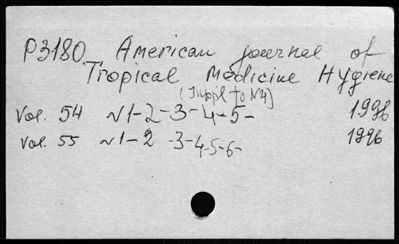 P3180. American journal of
Tropical Medicine Hygiene
(Suppl to N4)
Vol. 54 N1-2-3-4-5- 1996
Vol. 55 N1-2 -3-4-5-6- 1996